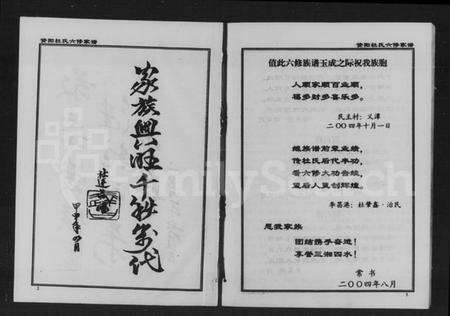 资阳杜氏六修家谱
家族兴旺千秋万代
资阳杜氏六修家谱
值此六修族谱玉成之际祝我族胞
人顺家顺百业顺，
福多财多喜乐多。
民主村：义泽
二〇〇四年十月一日
继族谱前辈业绩，
传杜氏后代丰功，
看六修大功告竣，
望后人更创辉煌。
李昌港：杜资鑫·治民
恩我家族
团结携手奋进！
享誉三湘四水！
常书
二〇〇四年八月
FamilySearch